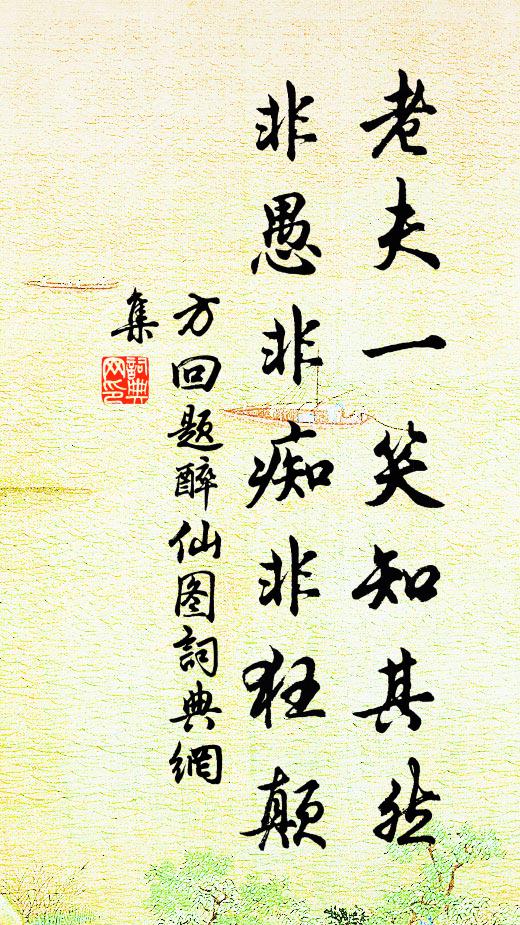 老夫一笑知其然
非愚非痴非狂颠
方回题醉仙图詞典網
集
詞典网印